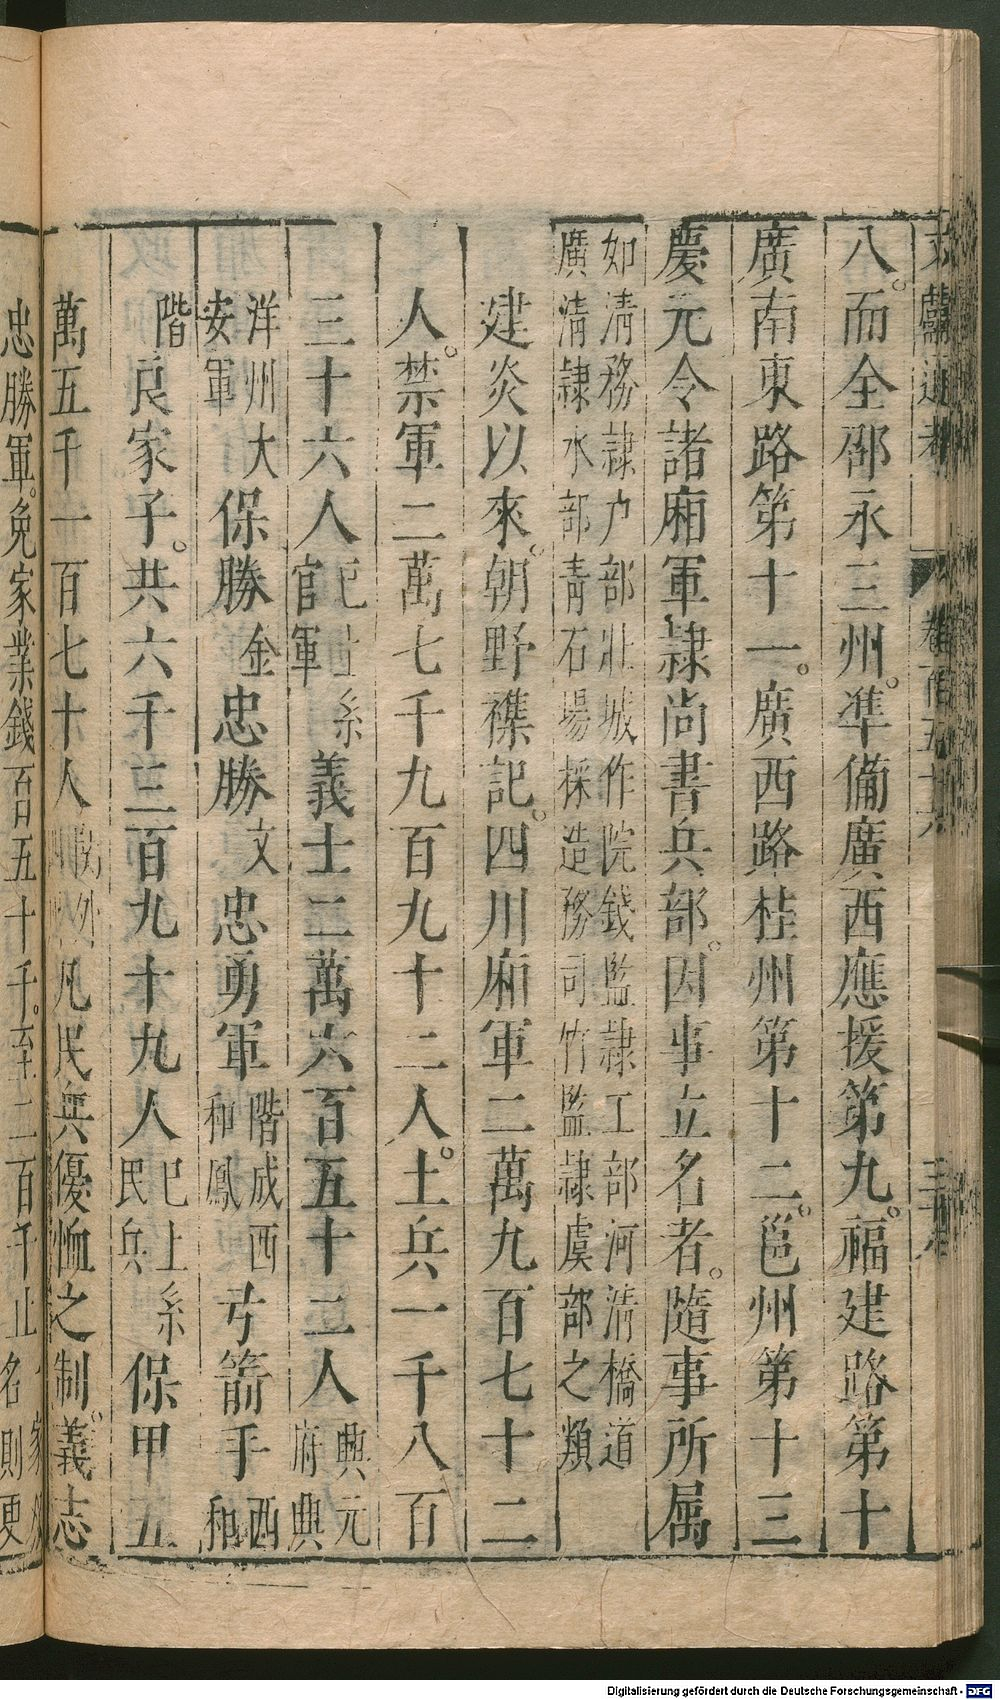 文獻通考 卷百五十六 三十八
八。而全邵永三州。準備廣西應援第九。福建路第十
廣南東路第十一。廣西路桂州第十二。邕州第十三
慶元令諸廂軍隷尚書兵部。因事立名者。隨事所属
如淸務隷户部壯城作院錢監隷工部河淸橋道
廣淸隷水部靑石場採造務司竹監隷虞部之類
建炎以來。朝野襍記。四川廂軍二萬九百七十二
人。禁軍二萬七千九百九十二人。土兵一千八百
三十六人已上系官軍義士二萬六百五十二人興元府興
洋州大安軍大保勝金忠勝文忠勇軍階成西和鳳弓箭手西和
階良家子。共六千三百九十九人已上系民兵保甲五
萬五千一百七十人凡民兵優恤之制。義志
忠勝軍。免家業錢百五十千。至二百千止
名則更